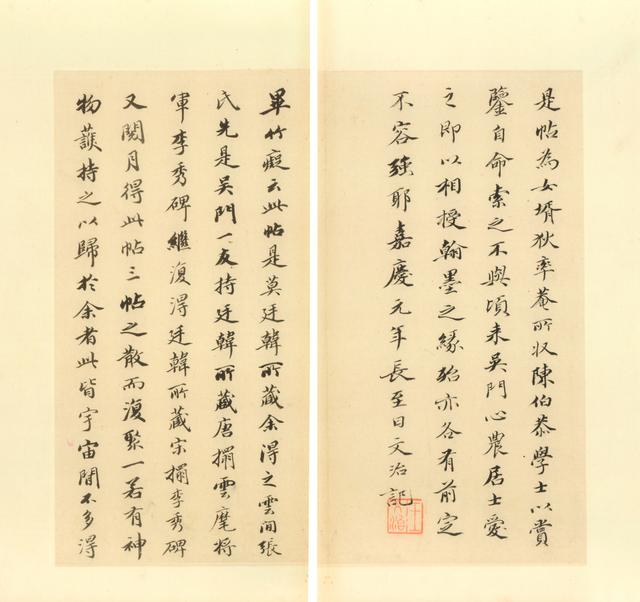 是帖為女壻狄率菴所収陳伯恭學士以賞
鑒自命索之不與頃来吳門心農居士愛
之即以相授翰墨之緣殆亦各有前定
不容強耶嘉慶元年長至日文治記
畢竹癡云此帖是莫廷韓所藏余得之雲間張
氏先是吳門一友持廷韓所藏唐搨雲麾將
軍李秀碑繼復得廷韓所藏宋搨李秀碑
又閱月得此帖三帖之散而復聚一若有神
物護持之以歸於余者此皆宇宙間不多得
王文治